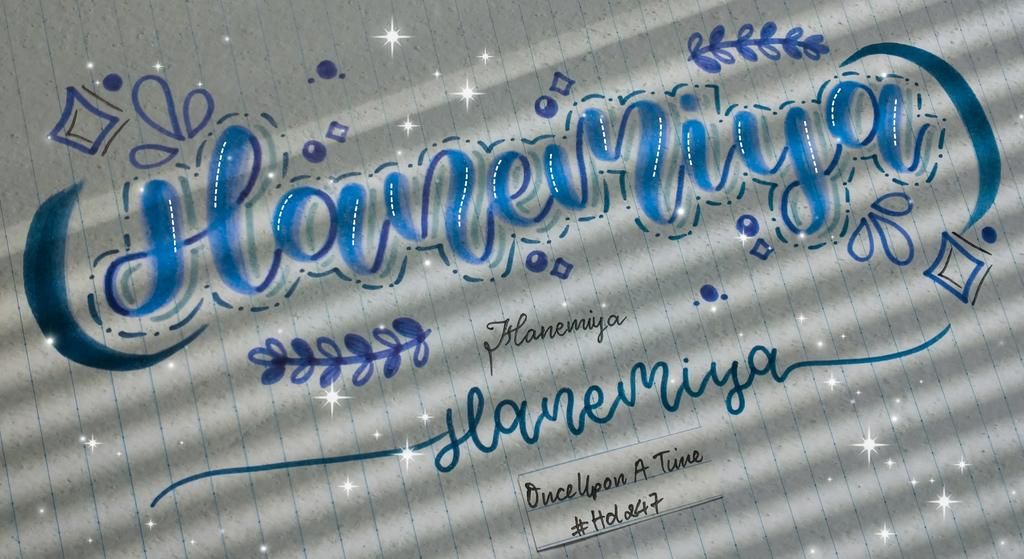 Hanemiya
Hanemiya
Hanemiya
Once Upon A Time